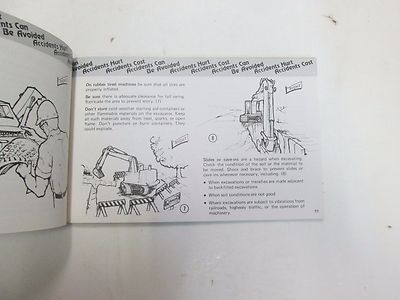 Accidents Cost
Accidents Can
Be Avoided
Accidents Hurt
Accidents Cost
Be Avoided
Accidents Hurt
Accidents Cost
Accidents Can
Be Avoided
Accidents Hurt
Accidents Cost
Accidents Can
Be Avoided
Accidents Hurt
Accidents Cost
On rubber tired machines be sure that all tires are
properly inflated.
Be sure there is adequate clearance for tail swing.
Barricade the area to prevent entry. (7)
Don't store cold weather starting aid containers or
other flammable materials on the excavator. Keep
all such materials away from heat, sparks, or open
flame. Don't puncture or burn containers. They
could explode.
7
8
Slides or cave-ins are a hazard when excavating.
Check the condition of the soil or the material to
be moved. Shore and brace to prevent slides or
cave ins wherever necessary, including: (8)
• When excavations or trenches are made adjacent
to backfilled excavations
• When soil conditions are not good
• Where excavations are subject to vibrations from
railroads, highway traffic, or the operation of
machinery.
11